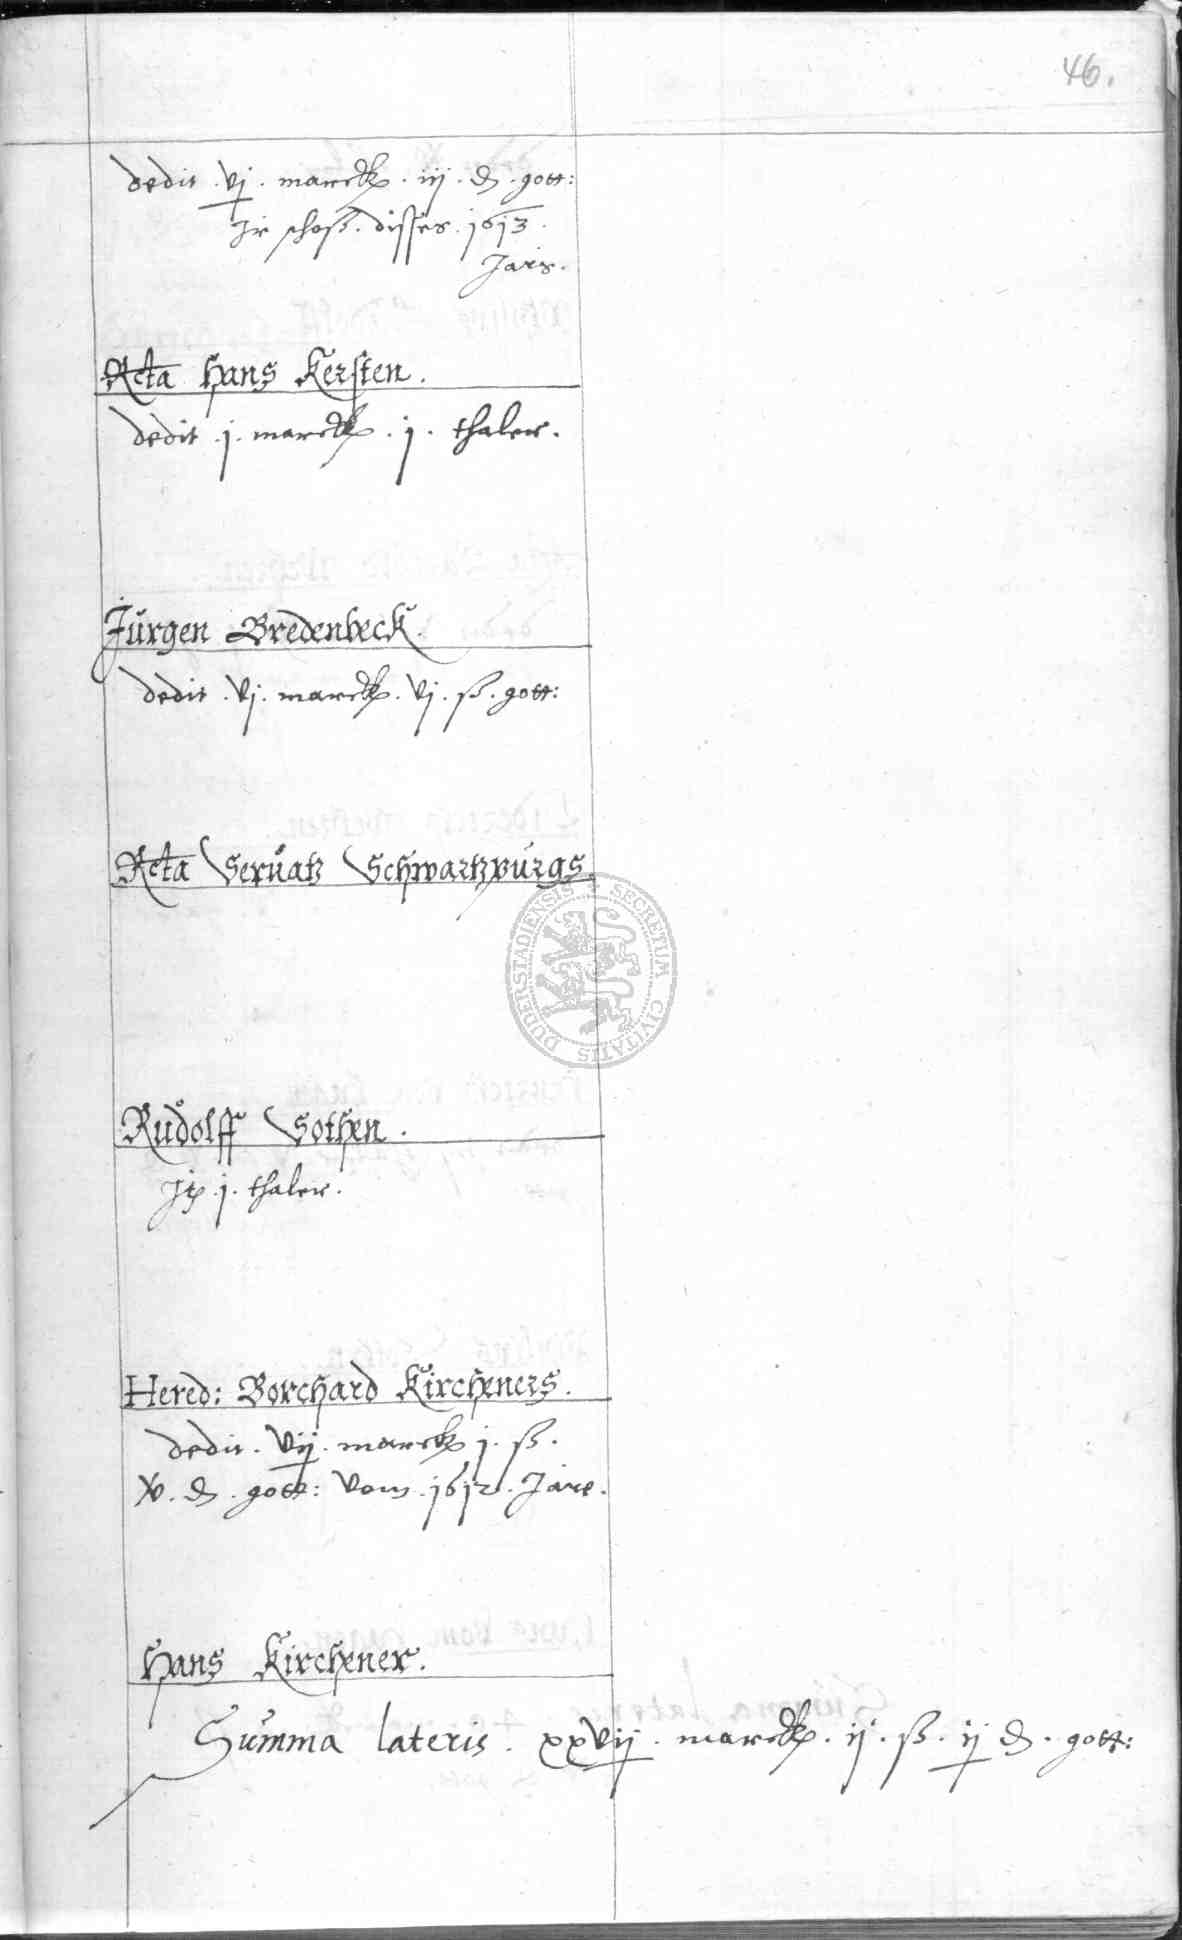 46.
dedit . vj . marck . iij . d . gott:
Ir schoß . disses . 1613 .
Jars .
Rcta Hans Kersten .
dedit . j . marck . j . thaler .
Jürgen Bredenbeck .
dedit . vj . marck . vj . ß . gott:
Rcta Servatz Schwartzburgs .
Rudolff Sothen .
Jt . j . thaler .
Hered: Borchard Kircheners .
dedit . vij . marck j . ß .
xv . d . gott: vom . 1612 . Jare .
Hans Kirchener .
Summa lateris . xxvij . marck . ij . ß . ij d . gott:
SECRETUM CIVITATIS DUDERSTADIENSIS